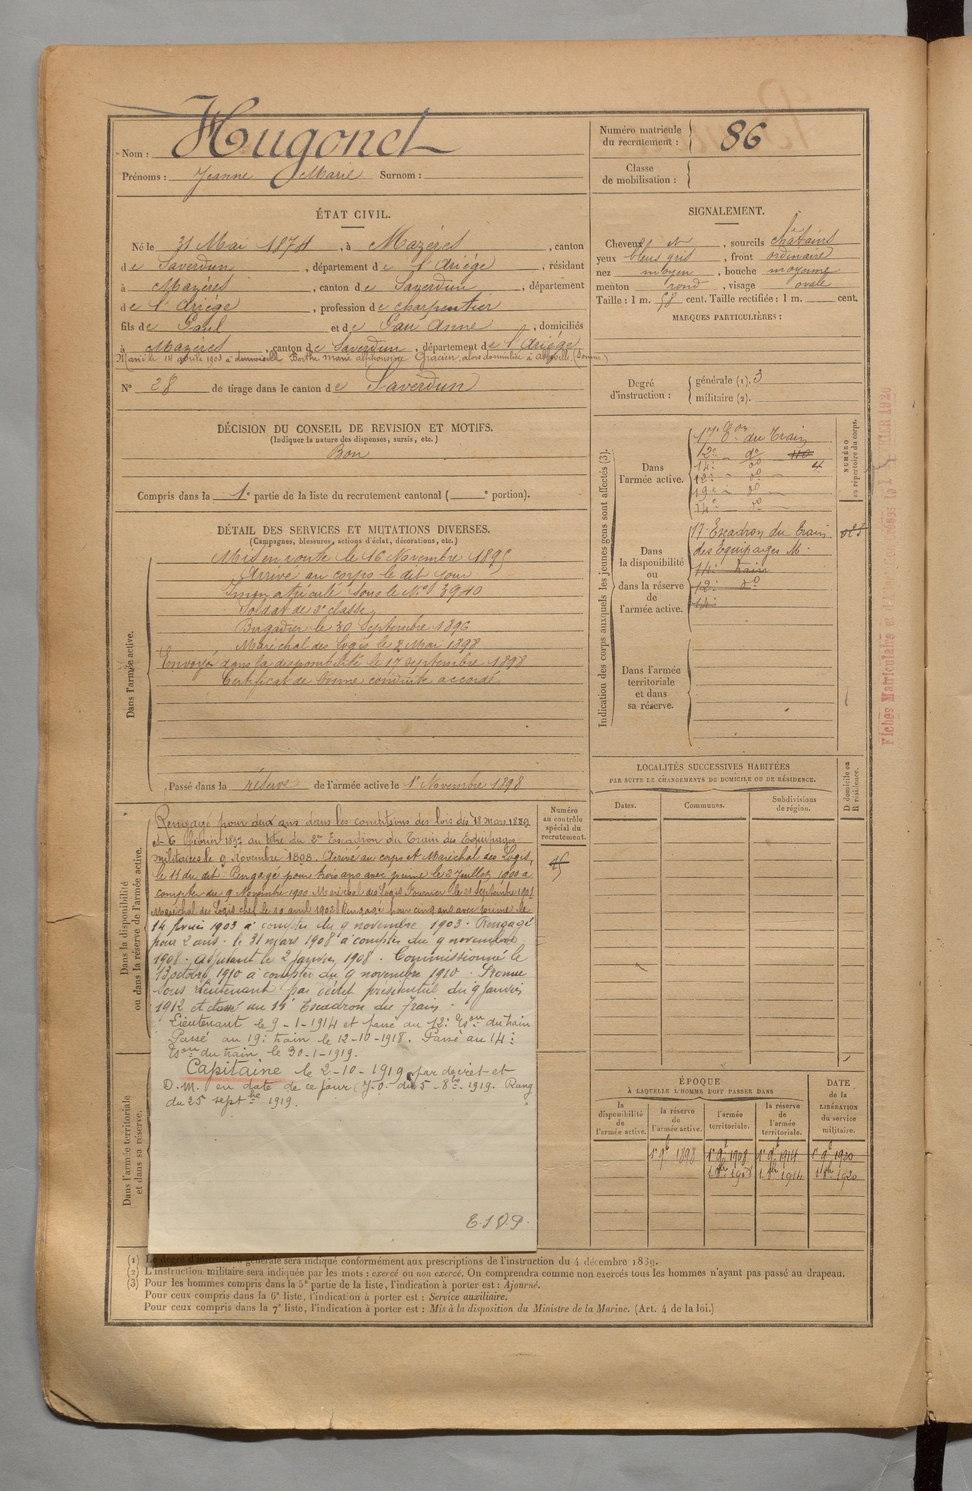 Nom : Hugonet
Prénoms : Jeanne Marie Surnom :
Numéro matricule du recrutement : 86
Classe de mobilisation :
ÉTAT CIVIL.
Né le 31 Mai 1874, à Mazères, canton
de Saverdun, département de l'Ariège, résidant
à Mazères, canton de Saverdun, département
de l'Ariège, profession de charpentier
fils de Paul et de Pau Anne, domiciliés
à Mazères, canton de Saverdun, département de l'Ariège
Marié le 18 avril 1903 à Berthe Marie Alphonsine Gracien, alors domiciliée à
N° 28 de tirage dans le canton de Saverdun
SIGNALEMENT.
Cheveux et, sourcils châtains
yeux bleus gris, front ordinaire
nez moyen, bouche moyenne
menton rond, visage ovale
Taille : 1 m. 58 cent. Taille rectifiée : 1 m. cent.
MARQUES PARTICULIÈRES :
Degré d'instruction : générale (1). 3
militaire (2).
DÉCISION DU CONSEIL DE REVISION ET MOTIFS.
(Indiquer la nature des dispenses, sursis, etc.)
Bon
Compris dans la 1e partie de la liste du recrutement cantonal ( e portion).
DÉTAIL DES SERVICES ET MUTATIONS DIVERSES.
(Campagnes, blessures, actions d'éclat, décorations, etc.)
Dans l'armée active.
Mis en route le 16 Novembre 1895
Arrivé au corps le dit jour
Immatriculé sous le N° 3940
Soldat de 2e classe
Brigadier le 30 Septembre 1896
Maréchal des Logis le 2 Mai 1898
Envoyé dans la disponibilité le 17 Septembre 1898
Certificat de bonne conduite accordé
Passé dans la réserve de l'armée active le 1er Novembre 1898
Indication des corps auxquels les jeunes gens sont affectés (3).
Dans l'armée active.
17e Eon du Train
12e do
4
14e do
12e do
19e do
14e do
NUMÉRO au répertoire du corps.
Dans la disponibilité ou dans la réserve de l'armée active.
17e Escadron du Train
des Equipages M.
14e train
12e do
14e
Dans l'armée territoriale et dans sa réserve.
LOCALITÉS SUCCESSIVES HABITÉES
PAR SUITE DE CHANGEMENTS DE DOMICILE OU DE RÉSIDENCE.
D domicile ou R résidence.
Dates. Communes. Subdivisions de région.
Dans la disponibilité ou dans la réserve de l'armée active.
Numéro au contrôle spécial du recrutement.
Rengagé pour deux ans dans les conditions des lois des 18 mars 1889
et 6 Février 1892 au titre du 2me Escadron du Train des Equipages
militaires le 9 Novembre 1898. Arrivé au corps et Maréchal des Logis,
le 11 du dit. Rengagé pour trois ans avec prime le 2 Juillet 1900 à
compter du 9 Novembre 1900. Maréchal des Logis Fourrier le 21 Septembre 1901
Maréchal des Logis chef le 10 avril 1902. Rengagé pour cinq ans avec prime le
14 février 1903 à compter du 9 novembre 1903. Rengagé
pour 2 ans le 31 mars 1908 à compter du 9 novembre
1908. Adjudant le 2 janvier 1908. Commissionné le
13 octobre 1910 à compter du 9 novembre 1910. Promu
sous lieutenant par décret présidentiel du 9 Janvier
1912 et classé au 14e Escadron du Train.
Lieutenant le 9-1-1914 et passé au 12e Eson du train
Passé au 19e train le 12-10-1918. Passé au 14e
Eson du train le 30-1-1919.
Capitaine le 2-10-1919 par décret et
D.M. en date de ce jour (J.O. du 5-8bre 1919. Rang
du 25 septbre 1919.
Dans l'armée territoriale et dans sa réserve.
ÉPOQUE
À LAQUELLE L'HOMME DOIT PASSER DANS
DATE de la LIBÉRATION du service militaire.
la disponibilité de l'armée active.
la réserve de l'armée active.
l'armée territoriale.
la réserve de l'armée territoriale.
1er 9bre 1898 1er 9bre 1908 1er 9bre 1914 1er 9bre 1920
(1) Le degré d'instruction générale sera indiqué conformément aux prescriptions de l'instruction du 4 décembre 1889.
(2) L'instruction militaire sera indiquée par les mots : exercé ou non exercé. On comprendra comme non exercés tous les hommes n'ayant pas passé au drapeau.
(3) Pour les hommes compris dans la 5e partie de la liste, l'indication à porter est : Ajourné.
Pour ceux compris dans la 6e liste, l'indication à porter est : Service auxiliaire.
Pour ceux compris dans la 7e liste, l'indication à porter est : Mis à la disposition du Ministre de la Marine. (Art. 4 de la loi.)